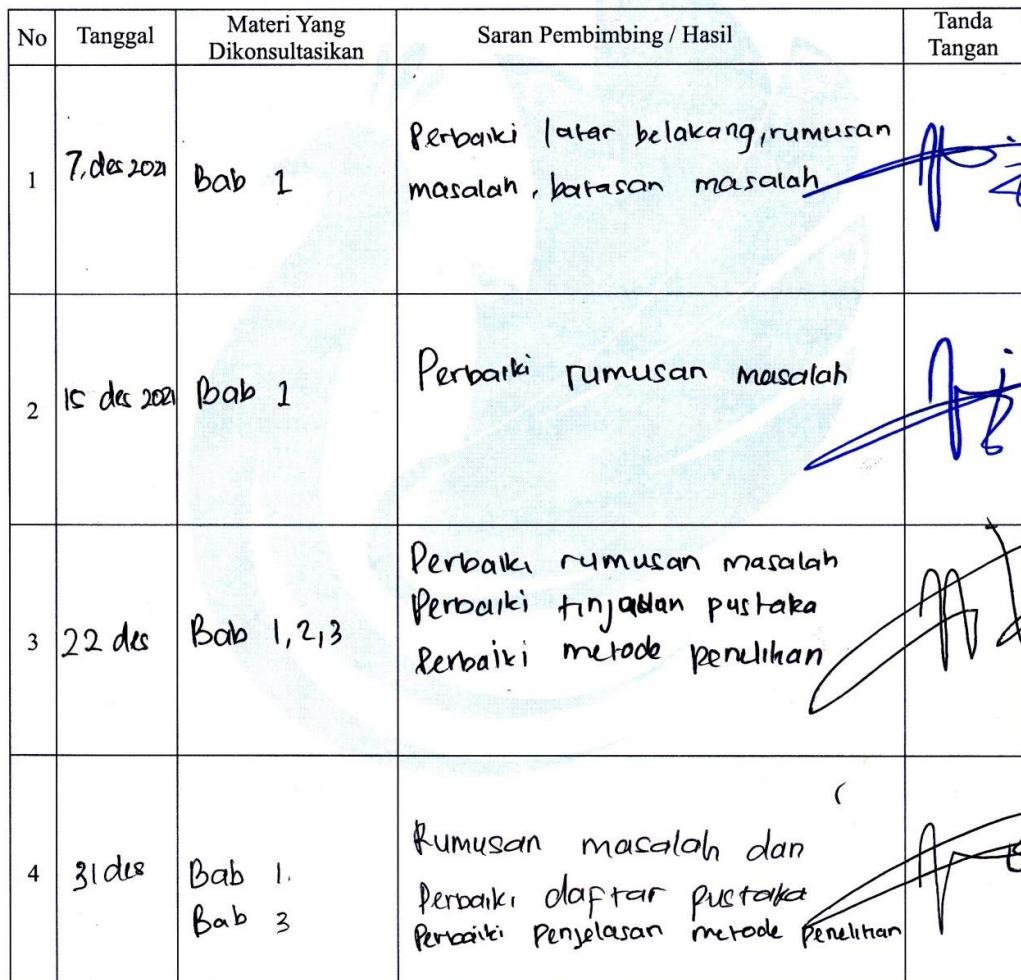 No Tanggal Materi Yang Dikonsultasikan Saran Pembimbing / Hasil Tanda Tangan
1 7, des 2021 Bab 1 Perbaiki latar belakang, rumusan
masalah, batasan masalah
2 15 des 2021 Bab 1 Perbaiki rumusan masalah
3 22 des Bab 1,2,3 Perbaiki rumusan masalah
Perbaiki tinjauan pustaka
Perbaiki metode penelitian
4 31 des Bab 1. Rumusan masalah dan
Bab 3 Perbaiki daftar pustaka
Perbaiki penjelasan metode penelitian